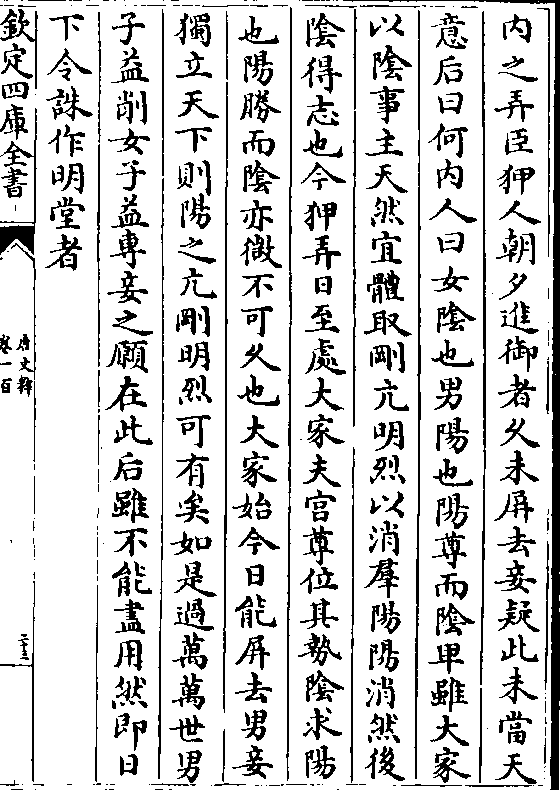 内之弄臣狎人朝夕進御者久未屏去妾疑此未當天
意后曰何内人曰女陰也男陽也陽尊而陰卑雖大家
以陰事主天然宜體取剛亢明烈以消羣陽陽消然後
陰得志也今狎弄日至處大家夫宮尊位其勢陰求陽
也陽勝而陰亦微不可久也大家始今日能屏去男妾
獨立天下則陽之亢剛明烈可有矣如是過萬萬世男
子益削女子益專妾之願在此后雖不能盡用然即日
下令誅作明堂者
欽定四庫全書
唐文粹
卷一百
二十三